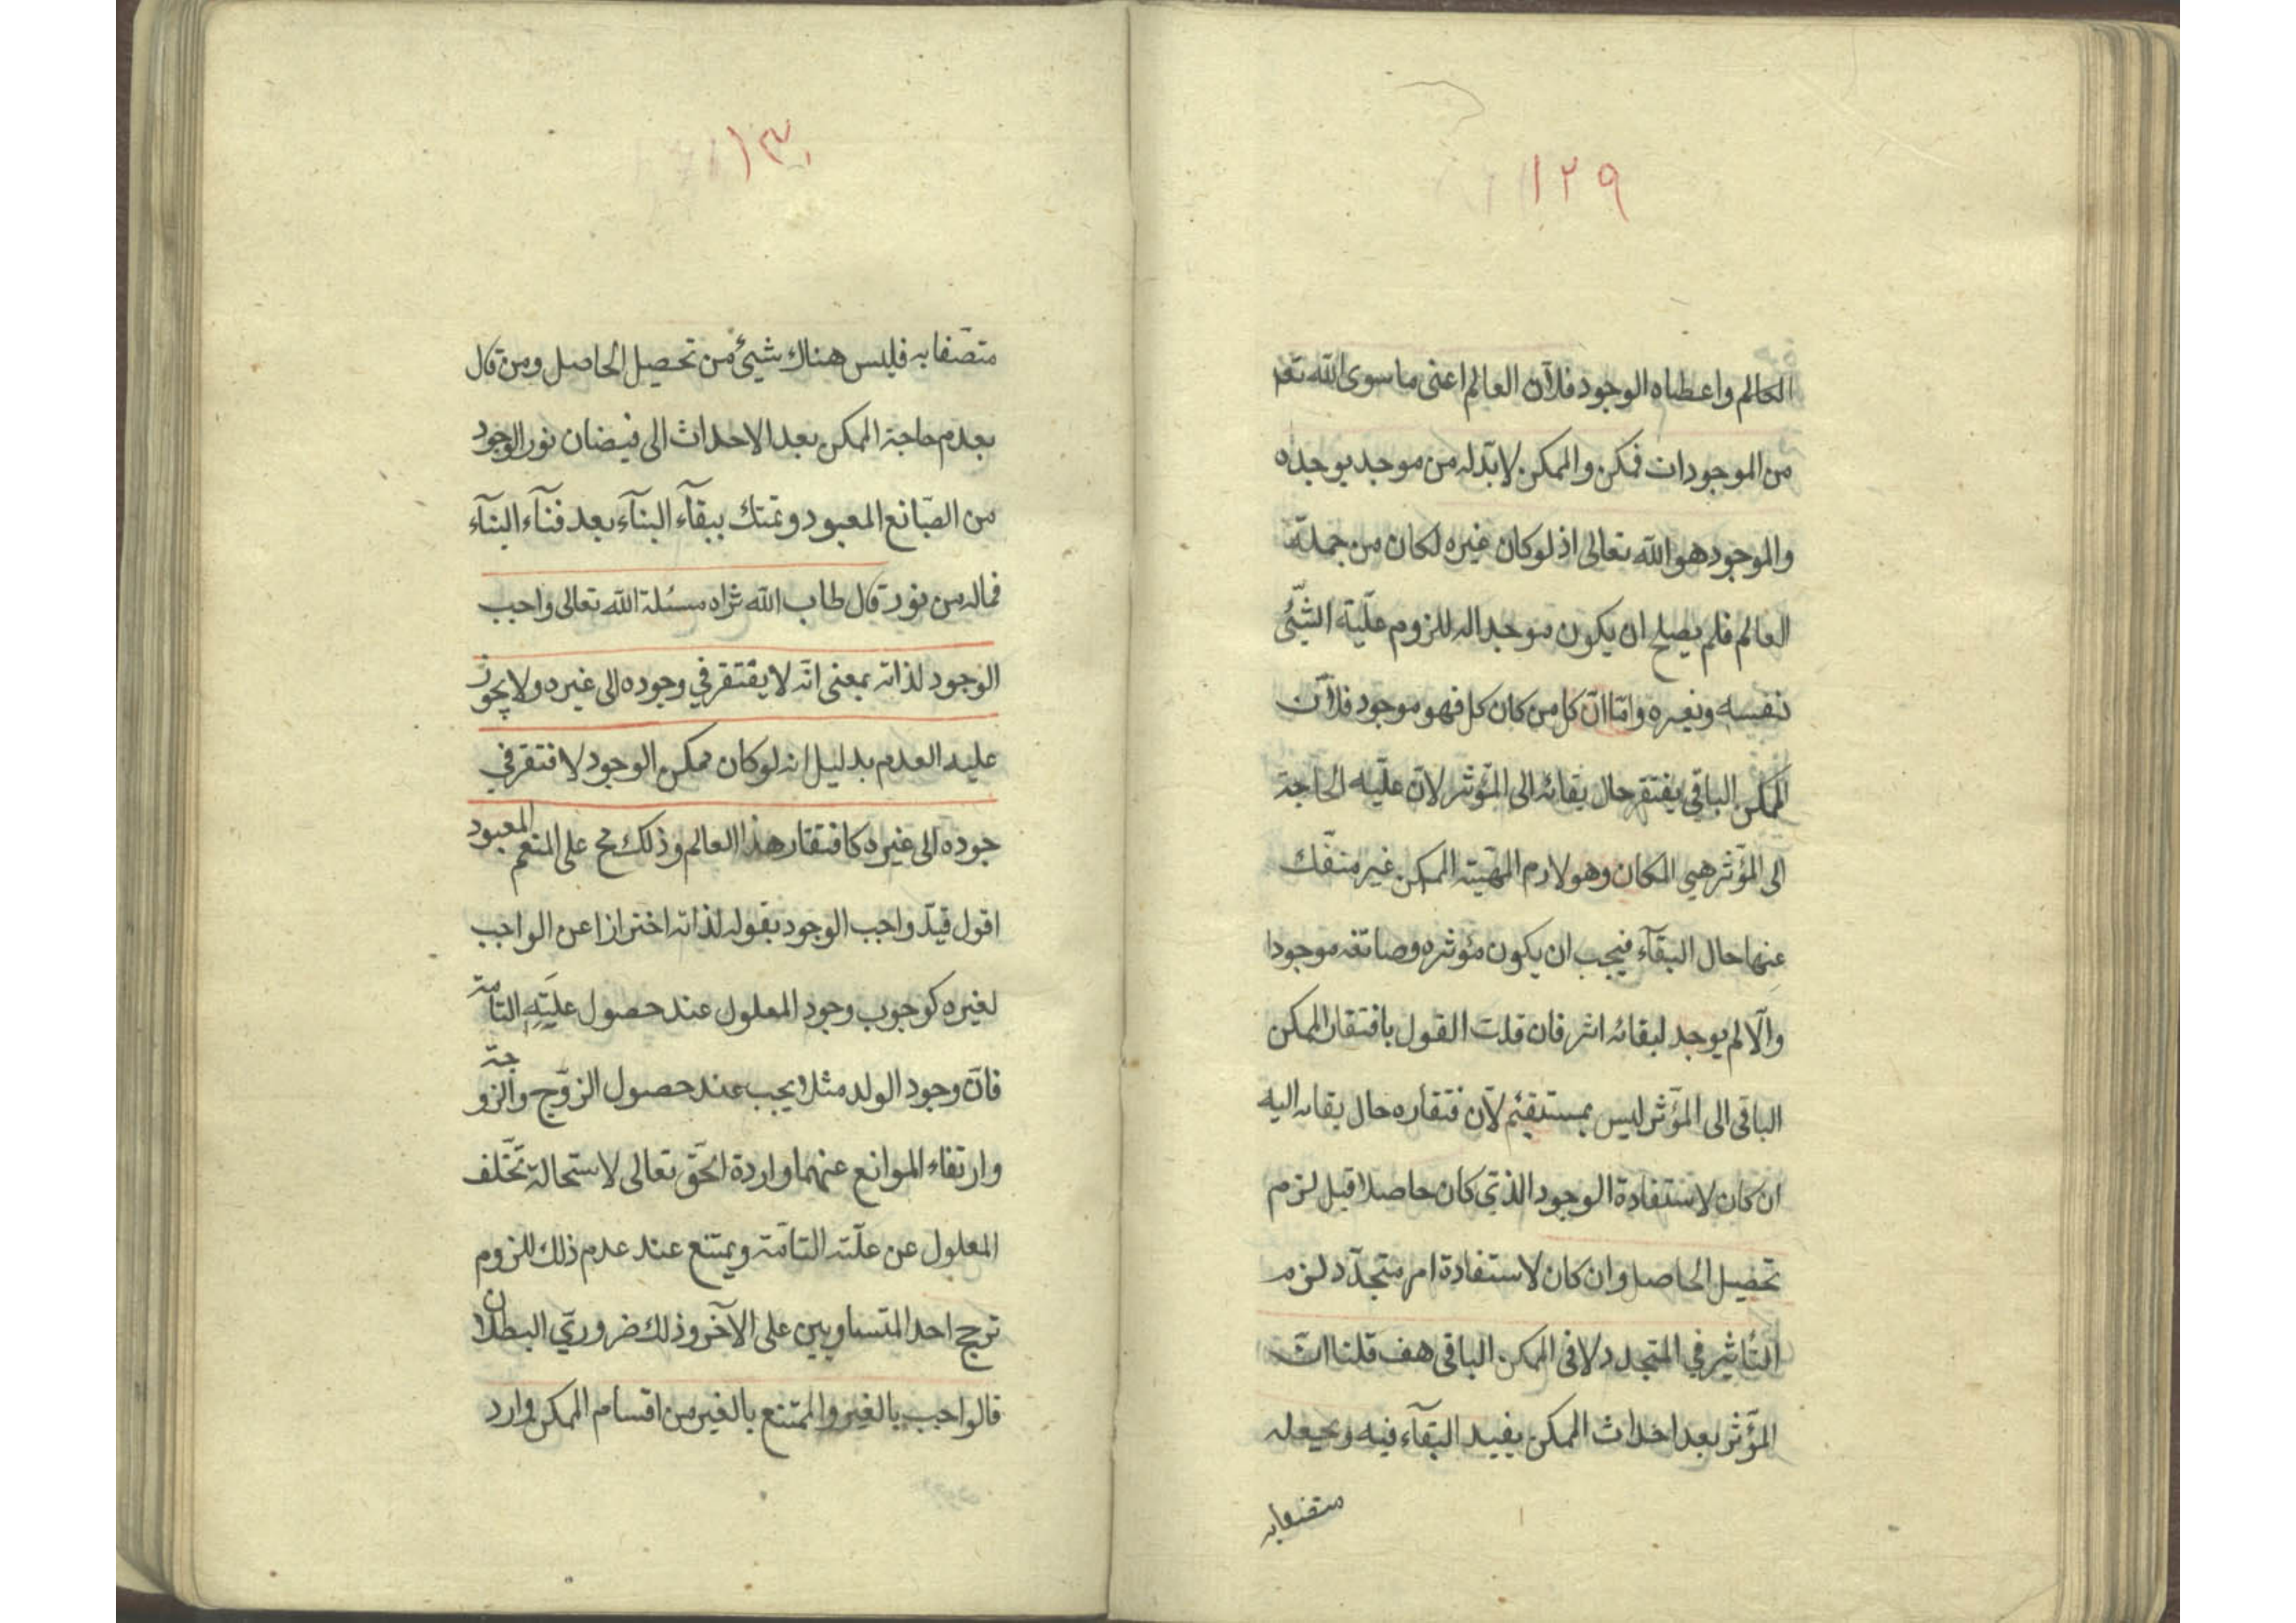 ١٢٩
العالم واعطاه الوجود فلانّ العالم اعنى ما سوى الله تعم
من الموجودات فممكن والممكن لابدّ له من موجد يوجده
والموجود هو الله تعالى اذ لو كان غيره لكان من جملة
العالم فلم يصلح ان يكون موجدا له للزوم علّية الشّئ
نفسه ونغيره وامّا انّ كل من كان كل فهو موجود فلانّ
الممكن الباقى يفتقر حال بقائه الى المؤثر لانّ علّيه الحاجة
الى المؤثر هي المكان وهو لازم المهيّته الممكن غير منفّك
عنها حال البقآء فيجب ان يكون مؤثره وصانعه موجودا
والّا لم يوجد لبقائه اثر فان قلت القول بافتقار الممكن
الباقى الى المؤثر ليس بمستقيم لانّ فتقاره حال بقائه اليه
ان كان لاستفادة الوجود الذي كان حاصلا قبل لزم
تحصيل الحاصل وان كان لاستفادة امر متجدّد لزم
التاثير في المتجدد لا فى الممكن الباقى هف قلنا انّ
المؤثر بعد احداث الممكن يفيد البقآء فيه ويجعله
متصفا به
١٣٠
متصّفا به فليس هناك شيئ من تحصيل الحاصل ومن قال
بعدم حاجة الممكن بعد الاحداث الى فيضان نور الوجود
من الصّانع المعبود وتمسك ببقآء البنآء بعد فنآء البنآء
فماله من نور قال طاب الله ثراه مسئلة الله تعالى واجب
الوجود لذاته بمعنى انّه لا يفتقر في وجوده الى غيره ولا يجوز
عليه العدم بدليل انه لو كان ممكن الوجود لافتقر في
جوده الى غيره كافتقار هذا العالم وذلك مح على المنعم المعبود
اقول قيدّ واجب الوجود بقوله لذاته اخترازا عن الواجب
لغيره كوجوب وجود المعلول عند حصول علّيَتِهِ التامة
فانّ وجود الولد مثلا يجب عند حصول الزوّج والزوجة
وارتفاء الموانع عنهما واردة الحقّ تعالى لاستحالة تخّلف
المعلول عن علّته التامّة ويمتنع عند عدم ذلك للزوم
ترجح احد المتساويين على الآخر وذلك ضروريّ البطلان
فالواجب بالغير والممتنع بالغير من اقسام الممكن وارد